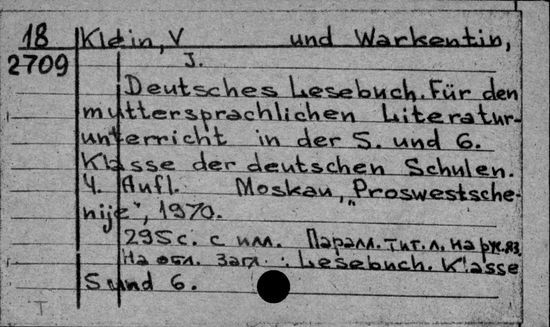 18 Klein, V und Warkentin,
2709 J.
Deutsches Lesebuch. Für den
muttersprachlichen Literatur-
unterricht in der 5. und 6.
Klasse der deutschen Schulen.
4. Aufl. Moskau, „Proswestsche-
nije", 1970.
295 с. с илл. Паралл. тит. л. на рус. яз.
На обл. загл.: Lesebuch. Klasse
5 und 6.
T